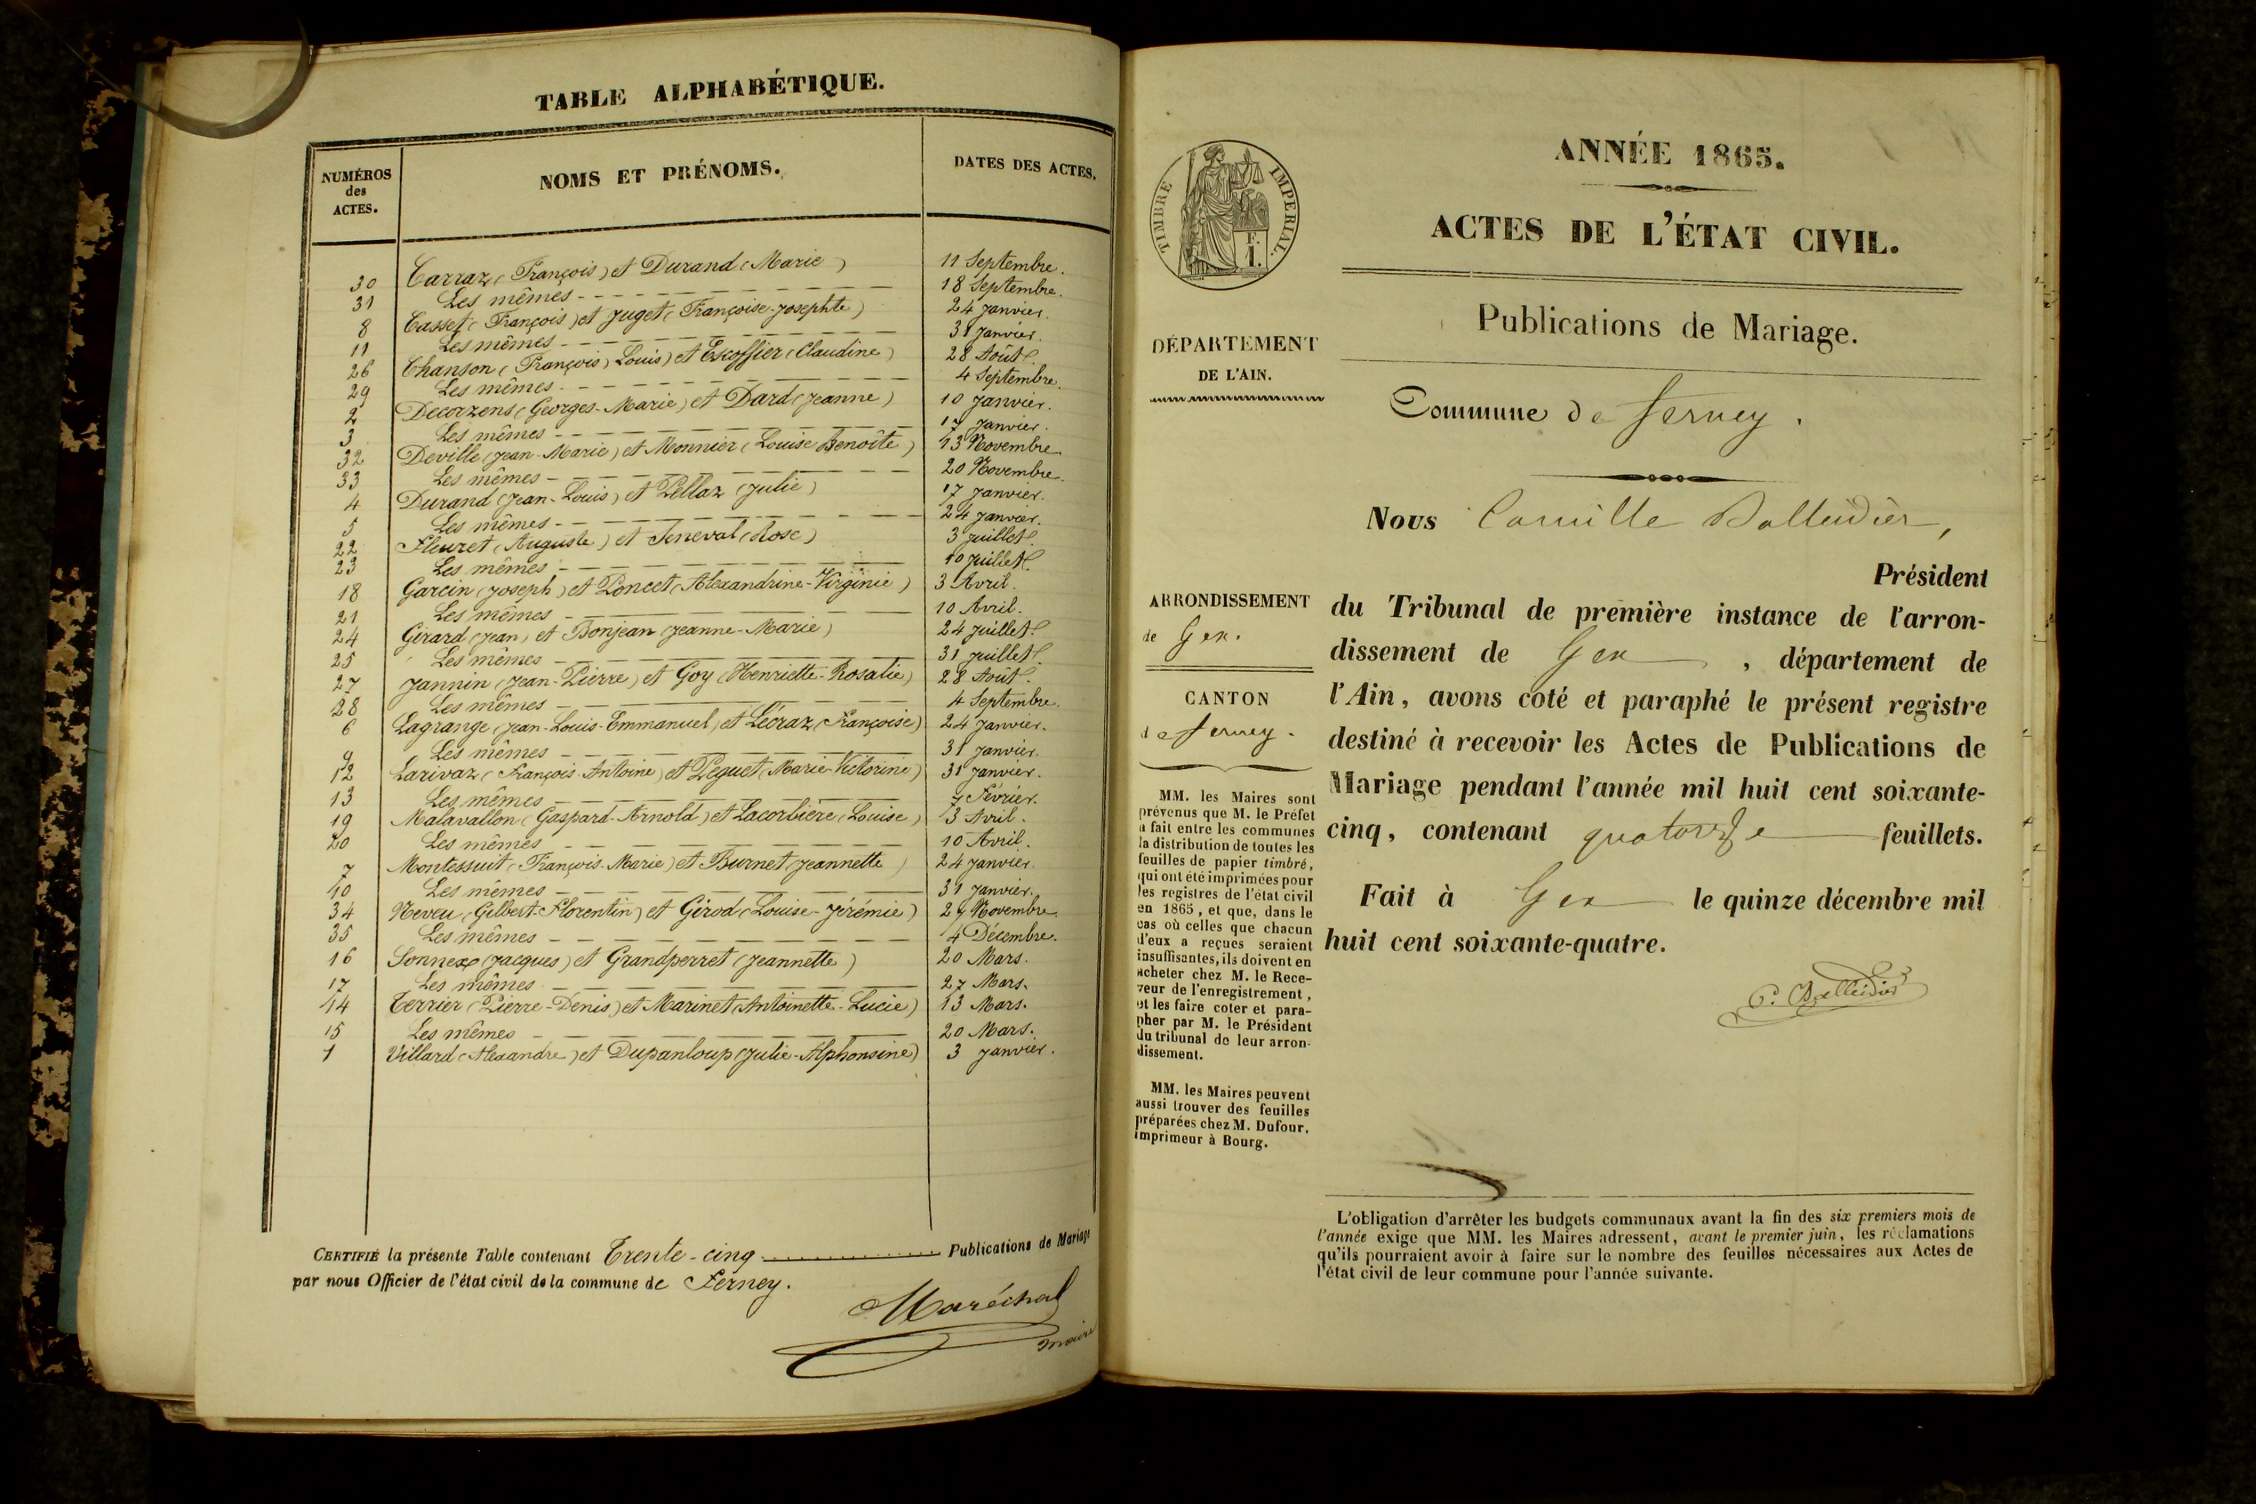 TABLE ALPHABÉTIQUE.
NUMÉROS des ACTES. NOMS ET PRÉNOMS. DATES DES ACTES.
30 Carraz (François) et Durand (Marie) 11 Septembre.
31 Les mêmes 18 Septembre.
8 Casset (François) et Juget (Françoise-Josephte) 24 Janvier.
11 Les mêmes 31 Janvier.
26 Chanson (François) Louis) et Escoffier (Claudine) 28 Août.
29 Les mêmes 4 Septembre.
2 Decorzens (Georges-Marie) et Dard (Jeanne) 10 Janvier.
3 Les mêmes 17 Janvier.
32 Deville (Jean-Marie) et Monnier (Louise Benoîte) 13 Novembre.
33 Les mêmes 20 Novembre.
4 Durand (Jean-Louis) et Pellaz (Julie) 17 Janvier.
5 Les mêmes 24 Janvier.
22 Fleuret (Auguste) et Seneval (Rose) 3 Juillet.
23 Les mêmes 10 Juillet.
18 Garcin (Joseph) et Poncet (Alexandrine-Virginie) 3 Avril.
21 Les mêmes 10 Avril.
24 Girard (Jean) et Bonjean (Jeanne-Marie) 24 Juillet.
25 Les mêmes 31 Juillet.
27 Jannin (Jean-Pierre) et Goy (Henriette-Rosalie) 28 Août.
28 Les mêmes 4 Septembre.
6 Lagrange (Jean-Louis-Emmanuel) et Lécraz (Françoise) 24 Janvier.
9 Les mêmes 31 Janvier.
12 Larivaz (François-Antoine) et Peguet (Marie-Victorine) 31 Janvier.
13 Les mêmes 7 Février.
19 Malavallon (Gaspard-Arnold) et Lacorbière (Louise) 3 Avril.
20 Les mêmes 10 Avril.
7 Montessuit (François-Marie) et Burnet (Jeannette) 24 Janvier.
10 Les mêmes 31 Janvier.
34 Neveu (Gilbert-Florentin) et Girod (Louise-Jérémie) 27 Novembre.
35 Les mêmes 4 Décembre.
16 Sonnex (Jacques) et Grandperret (Jeannette) 20 Mars.
17 Les mêmes 27 Mars.
14 Terrier (Pierre-Denis) et Marinet (Antoinette-Lucie) 13 Mars.
15 Les mêmes 20 Mars.
1 Villard (Alexandre) et Dupanloup (Julie-Alphonsine) 3 Janvier.
CERTIFIÉ la présente Table contenant Trente-cinq Publications de Mariage
par nous Officier de l'état civil de la commune de Ferney.
Maréchal
maire
TIMBRE IMPERIAL.
F. 1.
DÉPARTEMENT
DE L'AIN.
ARRONDISSEMENT
de Gex.
CANTON
de Ferney.
MM. les Maires sont
prévenus que M. le Préfet
a fait entre les communes
la distribution de toutes les
feuilles de papier timbré,
qui ont été imprimées pour
les registres de l'état civil
en 1865, et que, dans le
cas où celles que chacun
d'eux a reçues seraient
insuffisantes, ils doivent en
acheter chez M. le Rece-
veur de l'enregistrement,
et les faire coter et para-
pher par M. le Président
du tribunal de leur arron-
dissement.
MM. les Maires peuvent
aussi trouver des feuilles
préparées chez M. Dufour,
imprimeur à Bourg.
ANNÉE 1865.
ACTES DE L'ÉTAT CIVIL.
Publications de Mariage.
Commune de Ferney.
Nous Camille Balleidier,
Président
du Tribunal de première instance de l'arron-
dissement de Gex, département de
l'Ain, avons coté et paraphé le présent registre
destiné à recevoir les Actes de Publications de
Mariage pendant l'année mil huit cent soixante-
cinq, contenant quatorze feuillets.
Fait à Gex le quinze décembre mil
huit cent soixante-quatre.
C. Balleidier
L'obligation d'arrêter les budgets communaux avant la fin des six premiers mois de
l'année exige que MM. les Maires adressent, avant le premier juin, les réclamations
qu'ils pourraient avoir à faire sur le nombre des feuilles nécessaires aux Actes de
l'état civil de leur commune pour l'année suivante.